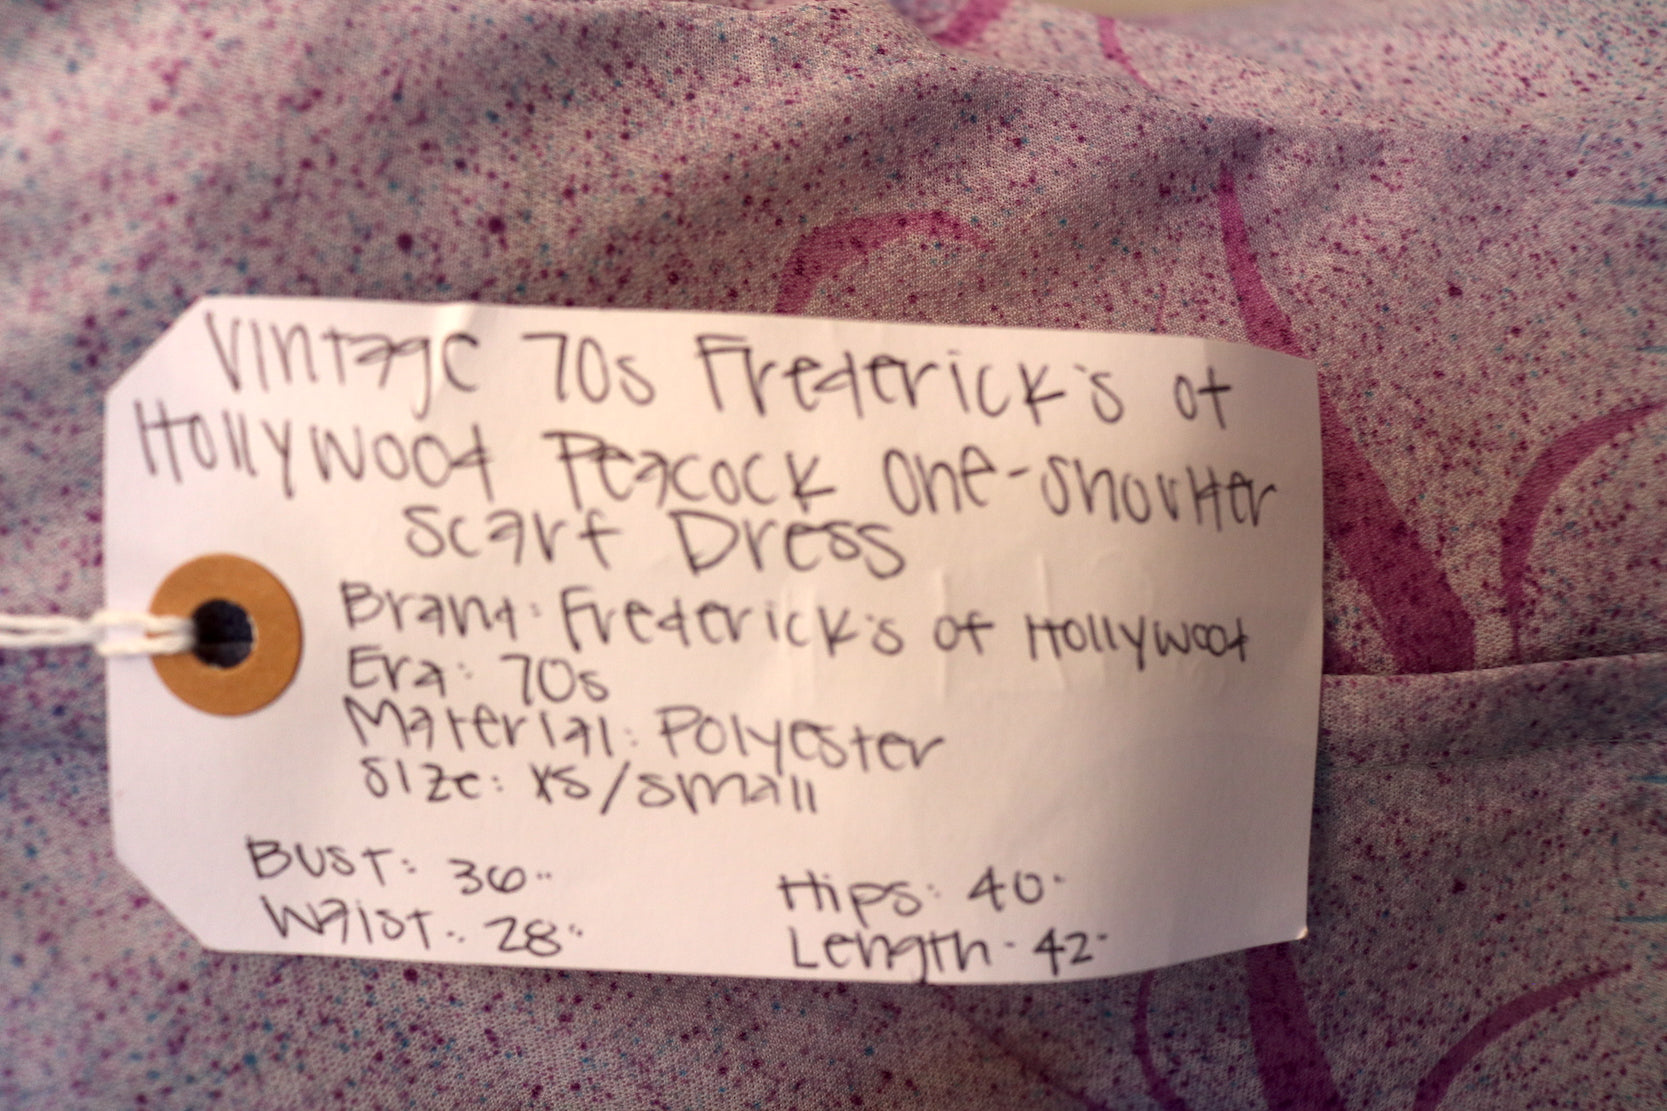 Vintage 70s Frederick's of
Hollywood Peacock One-Shoulder
Scarf Dress
Brand: Frederick's of Hollywood
Era: 70s
Material: Polyester
Size: XS/Small
Bust: 36"
Waist: 28"
Hips: 40"
Length: 42"